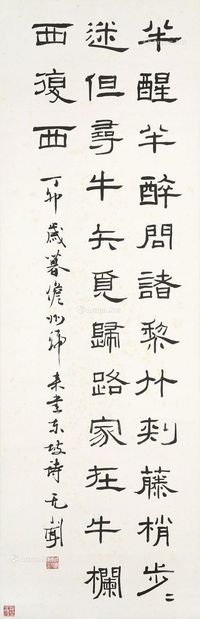 半醒半醉問諸黎竹刺藤梢步〻
迷但尋牛矢覓歸路家在牛欄
西復西
丁卯歲暮儋州歸來書東坡詩